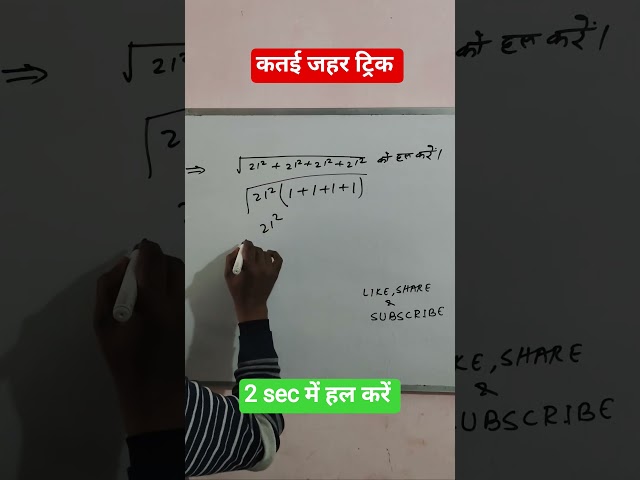 कतई जहर ट्रिक
⇒ √21² + 21² + 21² + 21² को हल करें।
√21² (1 + 1 + 1 + 1)
21²
LIKE, SHARE
&
SUBSCRIBE
2 sec में हल करें